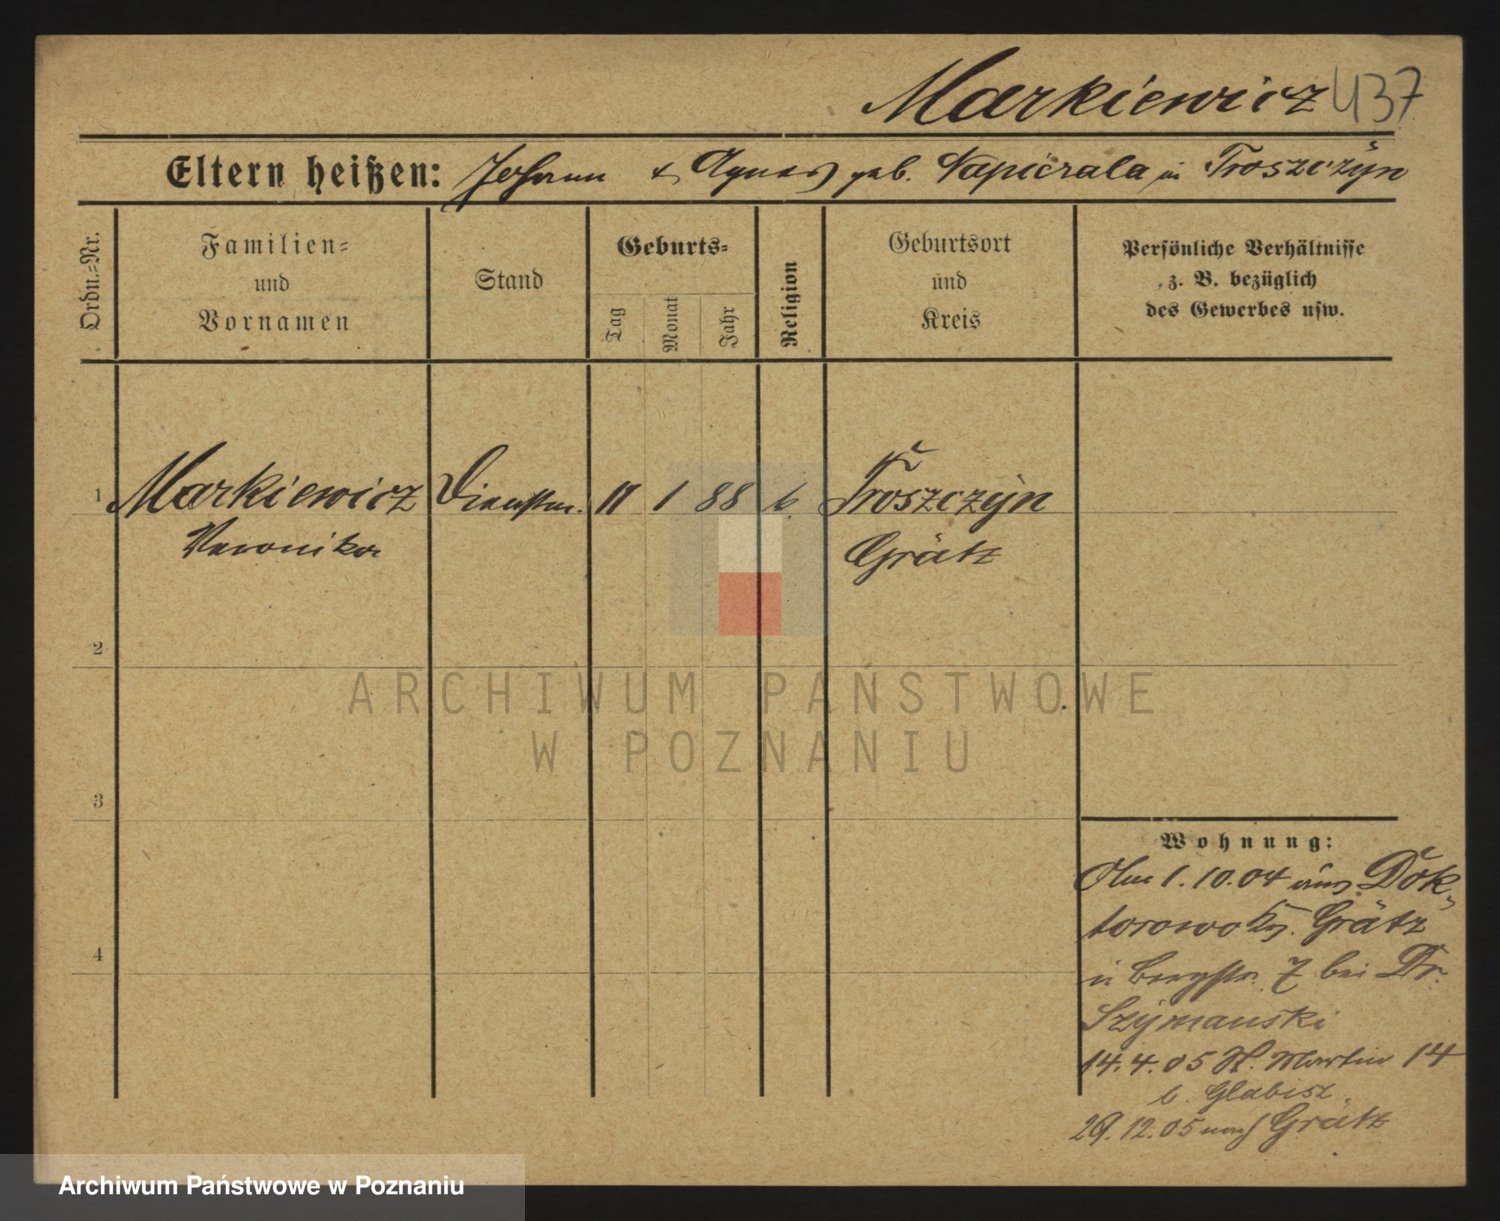 Markiewicz 437
Eltern heißen: Johann & Agnes geb. Napierala in Troszczÿn
Ordn.=Nr.
Familien=
und
Vornamen
Stand
Geburts=
Tag
Monat
Jahr
Religion
Geburtsort
und
Kreis
Persönliche Verhältnisse
z. B. bezüglich
des Gewerbes usw.
1 Markiewicz Dienstm. 11 1 88 k Troszczÿn
Veronika Grätz
2
ARCHIWUM PAŃSTWOWE
W POZNANIU
3
4
Wohnung:
1.10.04 aus Dok=
torowo Kr. Grätz
n Bergstr. 7 bei Dr.
Szÿmanski
14.4.05 St. Martin 14
b. Glabisz.
29.12.05 nach Grätz
Archiwum Państwowe w Poznaniu